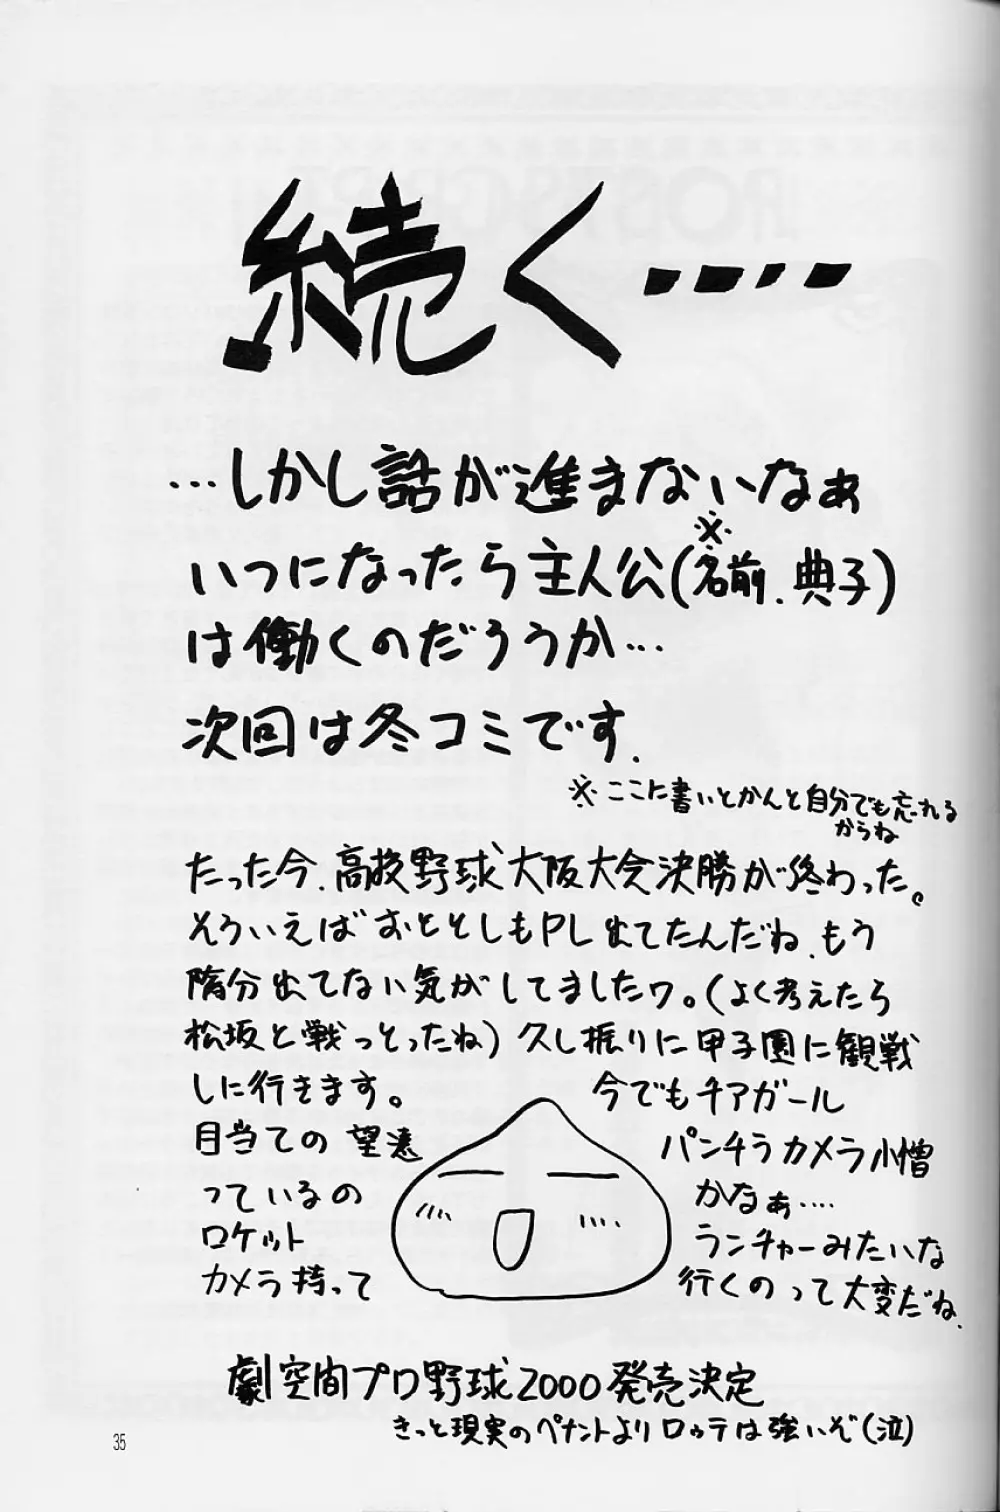 続く・・・・
…しかし話が進まないなぁ
いつになったら主人公(※名前.典子)
は働くのだろうか…
次回は冬コミです.
※ここに書いとかんと自分でも忘れる
からね
たった今、高校野球大阪大会決勝が終わった。
そういえばおととしもPL出てたんだね、もう
随分出てない気がしてましたワ。(よく考えたら
松坂と戦っとったね)久し振りに甲子園に観戦
しに行きます。
今でもチアガール
パンチラカメラ小僧
かなぁ....
目当ての望遠
っているの
ロケット
ランチャーみたいな
カメラ持って
行くのって大変だね.
劇空間プロ野球2000発売決定
きっと現実のペナントよりロッテは強いぞ(泣)
35